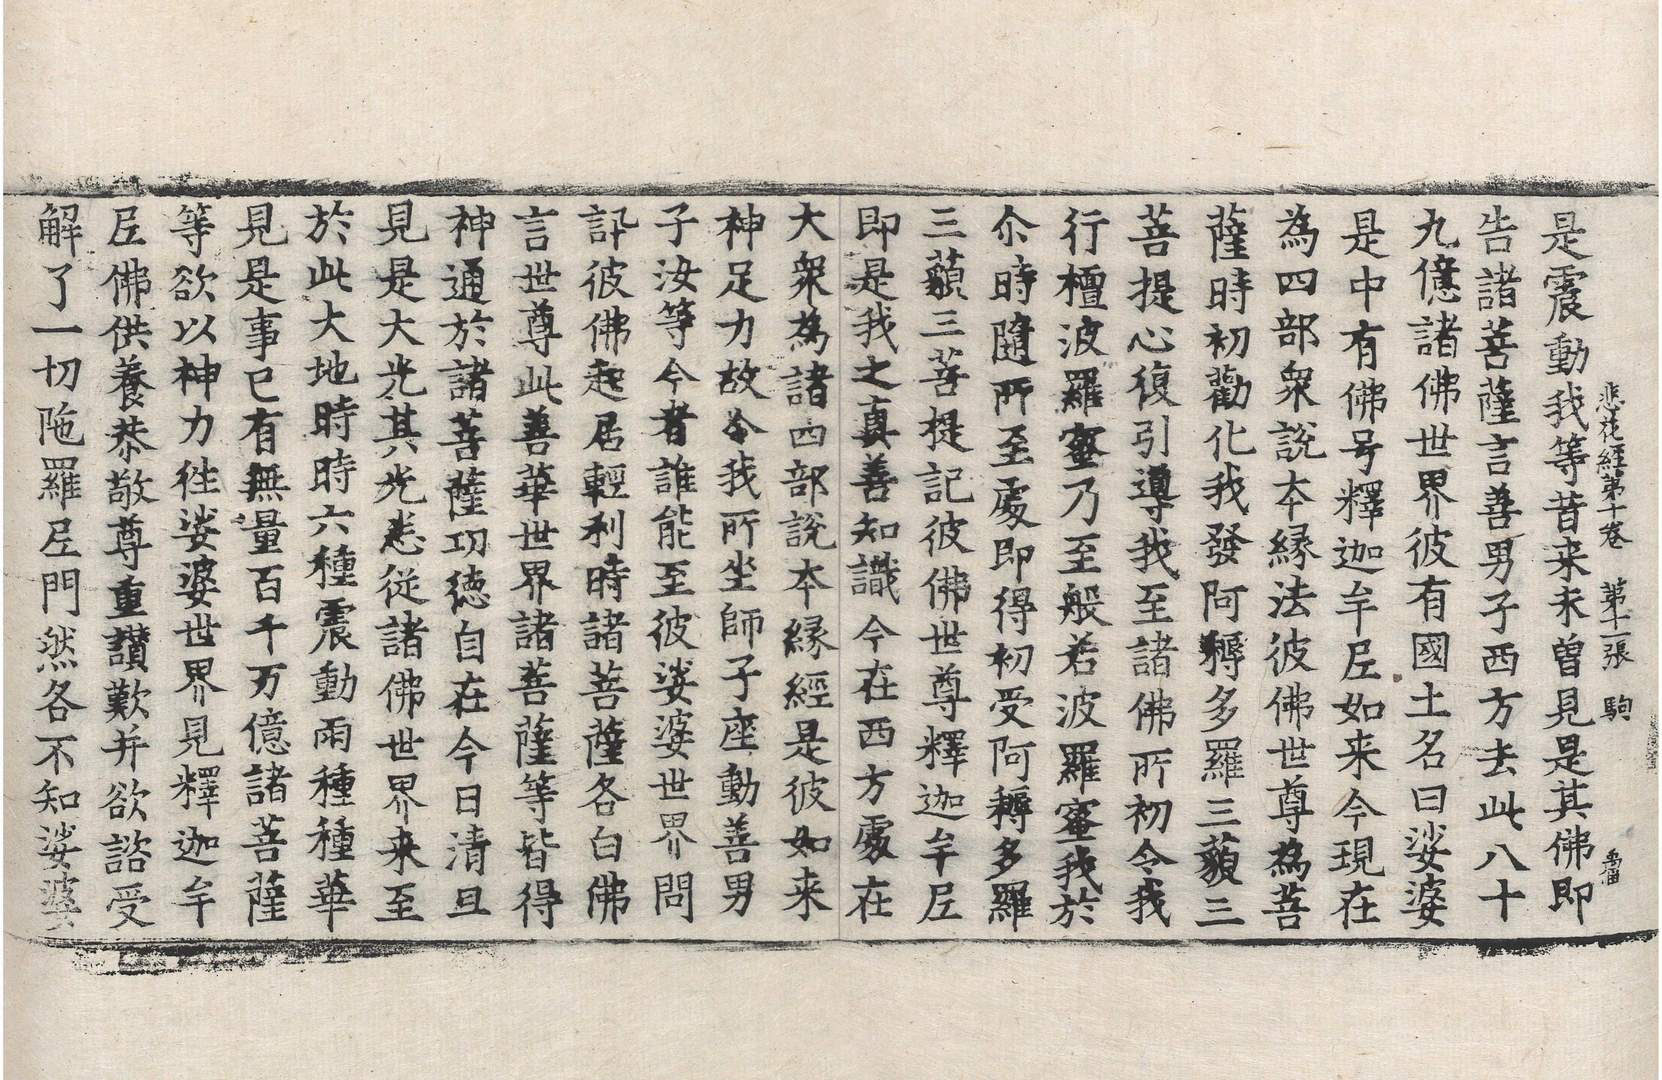 悲花經第十卷　第十一張　駒
是震動我等昔来未曽見是其佛即
告諸菩薩言善男子西方去此八十
九億諸佛世界彼有國土名曰娑婆
是中有佛号釋迦牟尼如来今現在
為四部衆說本緣法彼佛世尊為菩
薩時初勸化我發阿耨多羅三藐三
菩提心復引導我至諸佛所初令我
行檀波羅蜜乃至般若波羅蜜我於
尒時隨所至處即得初受阿耨多羅
三藐三菩提記彼佛世尊釋迦牟尼
即是我之真善知識今在西方處在
大衆為諸四部說本緣經是彼如来
神足力故令我所坐師子座動善男
子汝等今者誰能至彼娑婆世界問
訊彼佛起居輕利時諸菩薩各白佛
言世尊此善華世界諸菩薩等皆得
神通於諸菩薩功德自在今日清旦
見是大光其光悉從諸佛世界来至
於此大地時時六種震動雨種種華
見是事已有無量百千万億諸菩薩
等欲以神力徃娑婆世界見釋迦牟
尼佛供養恭敬尊重讃歎并欲諮受
解了一切陁羅尼門然各不知娑婆